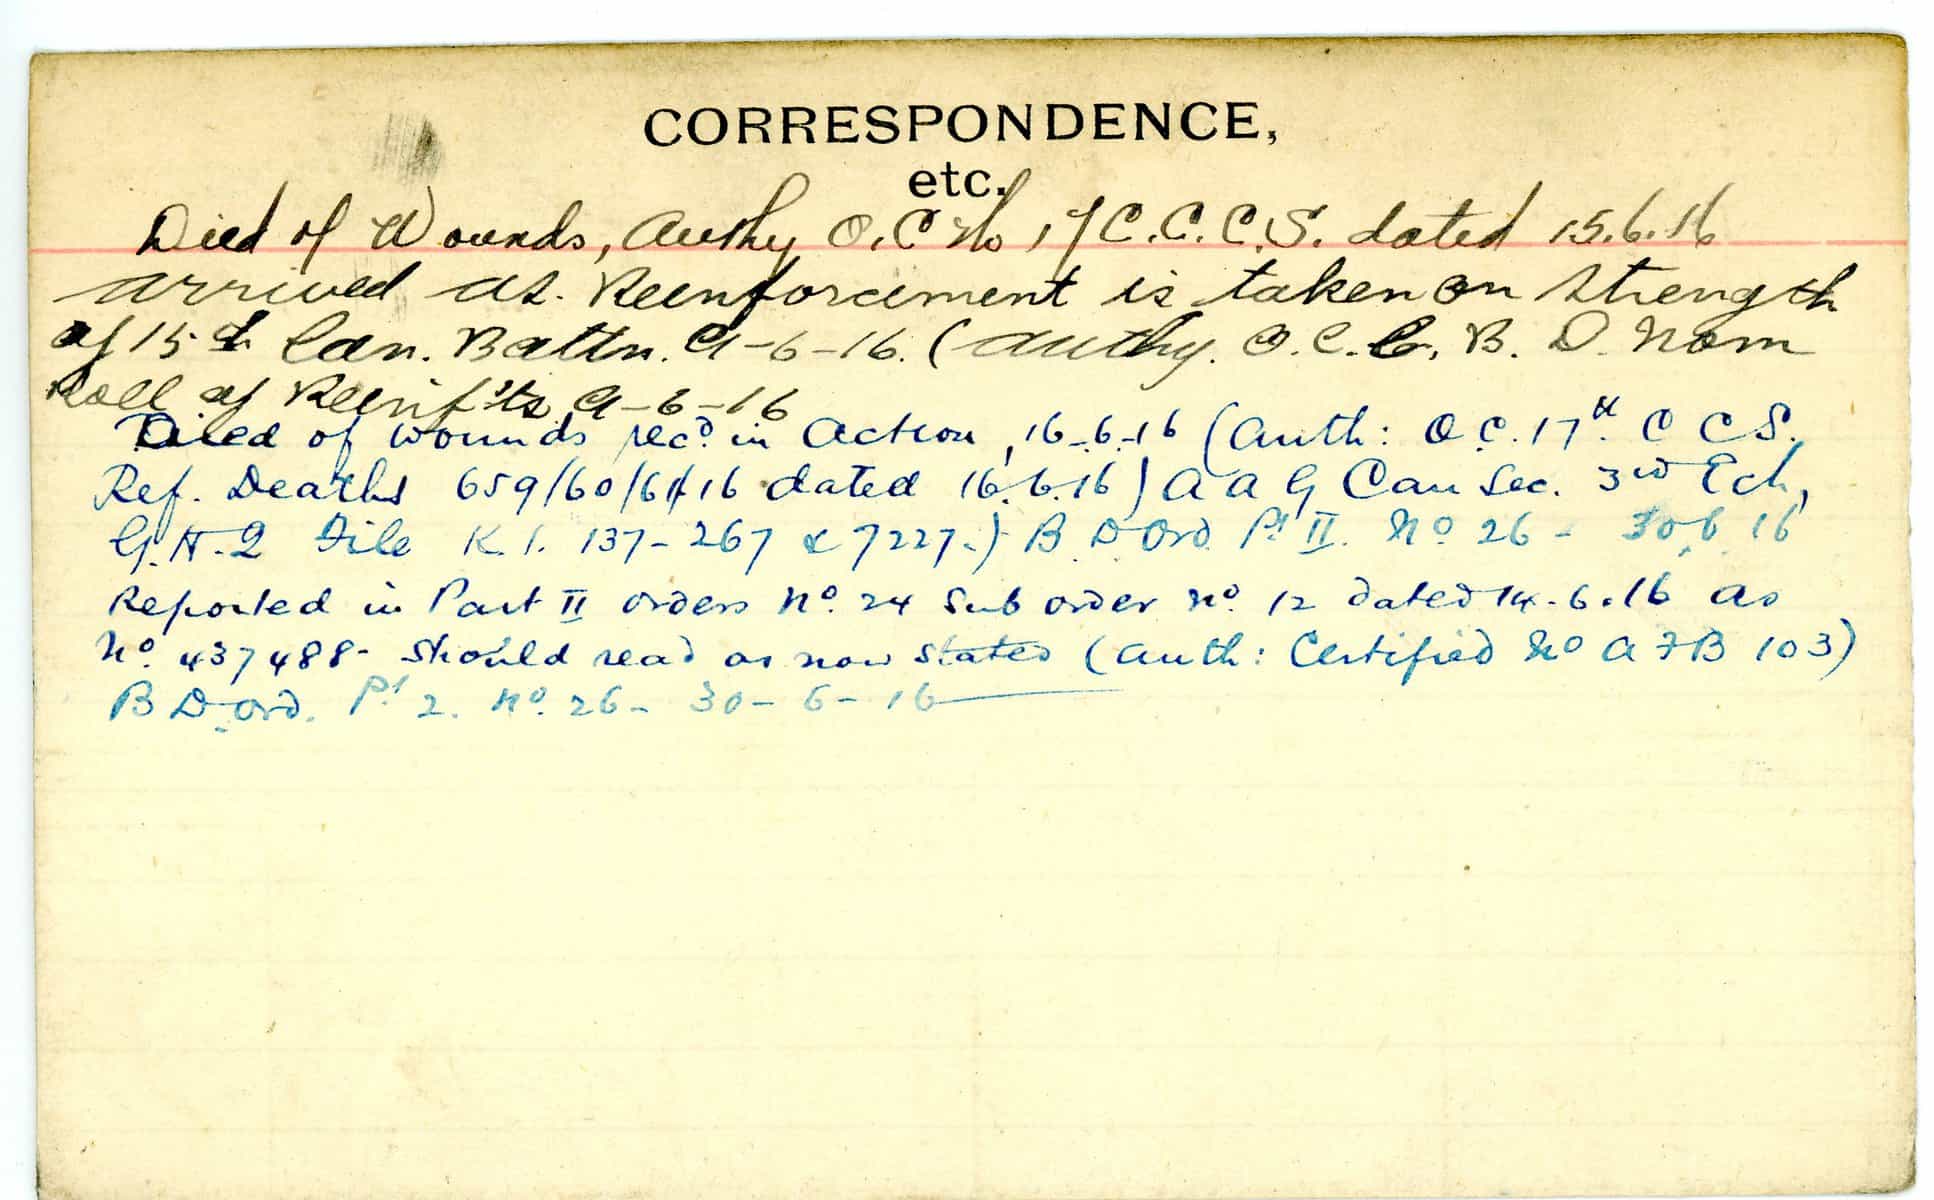 CORRESPONDENCE,
etc.
Died of Wounds, Authy O.C No 17 C.C.S. dated 15.6.16
arrived as. Reenforcement is taken on strength
of 15th Can. Battn. 9-6-16. (Authy. O.C.C.B.D. Nom
Roll of Reinf'ts 9-6-16
Died of wounds rec'd in Action, 16-6-16 (Auth: O.C. 17th. C C S.
Ref. Deaths 659/60/61/16 dated 16.6.16) A A G Can Sec. 3rd Ech,
G.H.Q File K. 1. 137-267 & 7227.) B D Ord Pt II. No 26 - 30.6.16
Reported in Part II orders No. 24 Sub order No. 12 dated 14.6.16 as
No. 437488- should read as now stated (Auth: Certified No A F B 103)
B D Ord. Pt 2. No. 26- 30-6-16